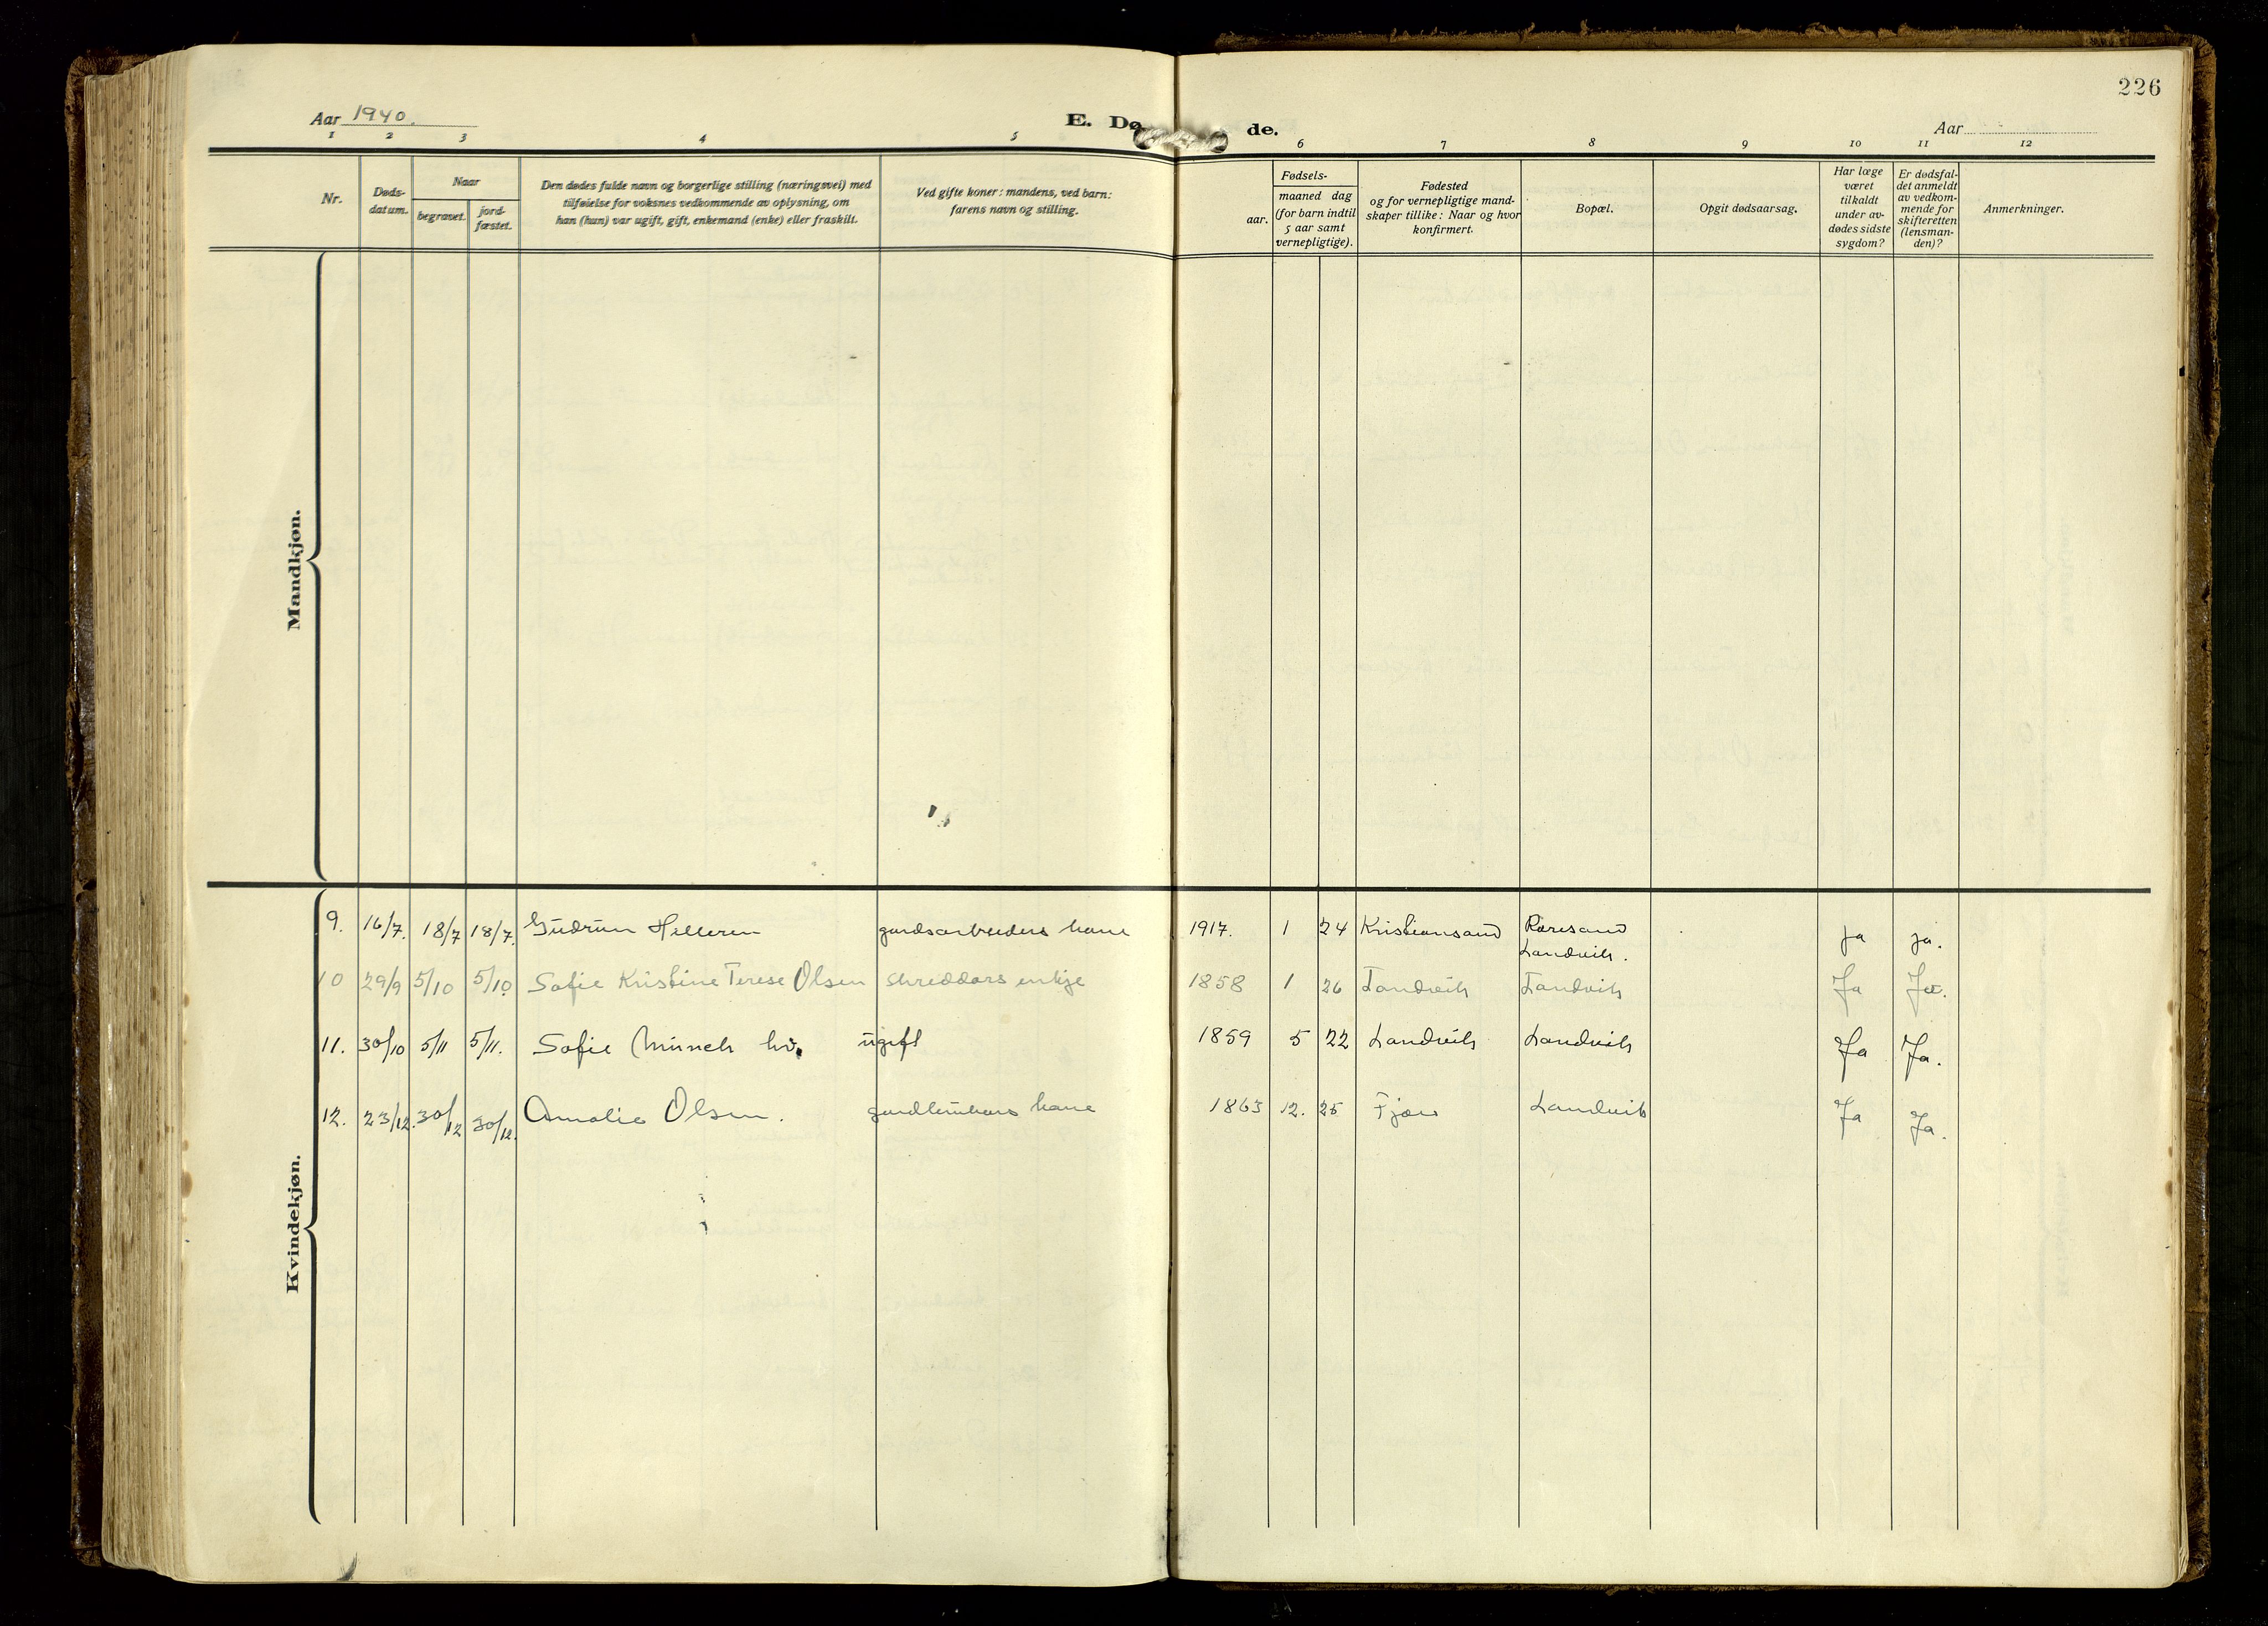 226
Aar 1940.
E. Dø de.
Aar
1 2 3 4 5 6 7 8 9 10 11 12
Nr.
Døds-
datum.
Naar
begravet.
jord-
fæstet.
Den dødes fulde navn og borgerlige stilling (næringsvei) med
tilføielse for voksnes vedkommende av oplysning, om
han (hun) var ugift, gift, enkemand (enke) eller fraskilt.
Ved gifte koner: mandens, ved barn:
farens navn og stilling.
Fødsels-
aar.
maaned dag
(for barn indtil
5 aar samt
vernepligtige).
Fødested
og for vernepligtige mand-
skaper tillike: Naar og hvor
konfirmert.
Bopæl.
Opgit dødsaarsag.
Har læge
været
tilkaldt
under av-
dødes sidste
sygdom?
Er dødsfal-
det anmeldt
av vedkom-
mende for
skifteretten
(lensman-
den)?
Anmerkninger.
Mandkjøn.
Kvindekjøn.
9. 16/7. 18/7 18/7. Gudrun Hilleren gardsarbeiders kane 1917. 1 24 Kristiansand Roresand ja ja.
Landvik.
10 29/9 5/10 5/10 Sofie Kristine Terese Olsen skreddars enkje 1858 1 26 Landvik Landvik Ja Ja.
11. 30/10 5/11 5/11. Sofie Münch hv. ugift 1859 5 22 Landvik Landvik Ja Ja.
12. 23/12. 30/12 30/12. Amalie Olsen. gardbrukars kane 1863 12. 25 Fjære Landvik Ja Ja.